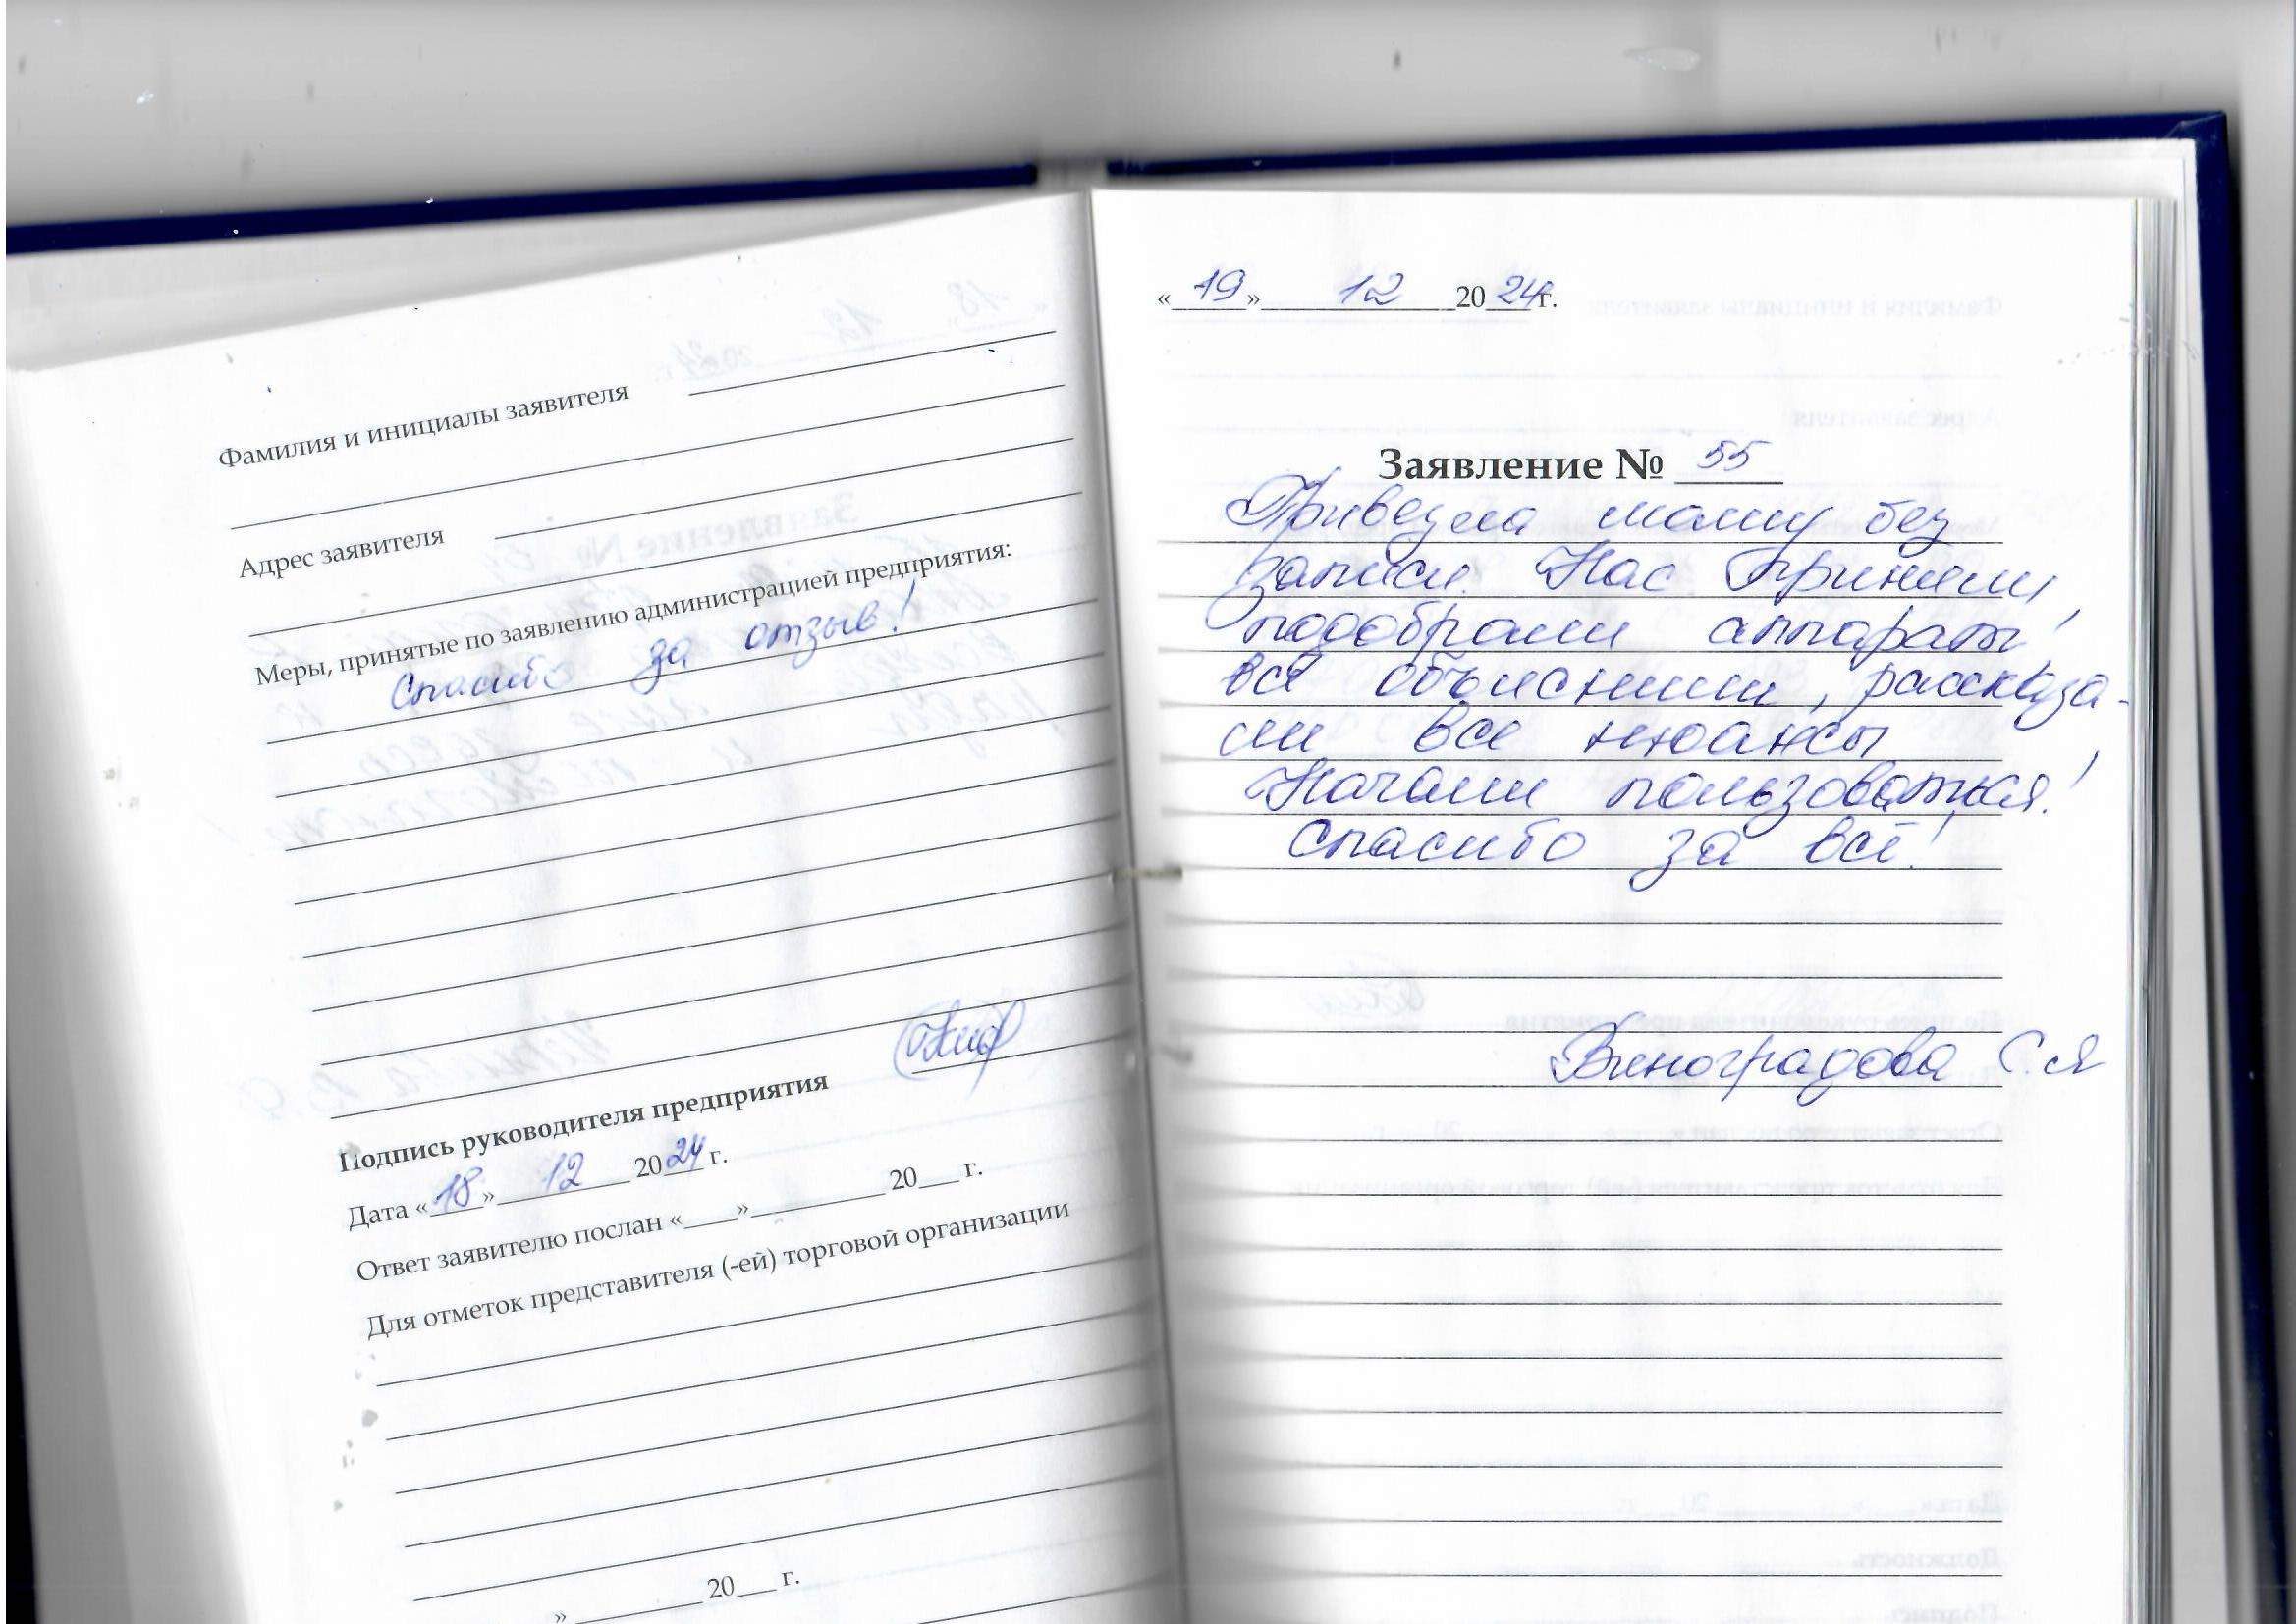 Фамилия и инициалы заявителя
Адрес заявителя
Меры, принятые по заявлению администрацией предприятия:
Спасибо за отзыв!
Подпись руководителя предприятия
Дата «18» 12 2024 г.
Ответ заявителю послан «___»__________ 20___ г.
Для отметок представителя (-ей) торговой организации
»__________ 20___ г.
«19» 12 2024г.
Заявление № 55
Привезла маму без
записи. Нас приняли,
подобрали аппарат!
всё объяснили, расказа-
ли все нюансы
Начали пользоваться!
Спасибо за всё!
Виноградова С.Я